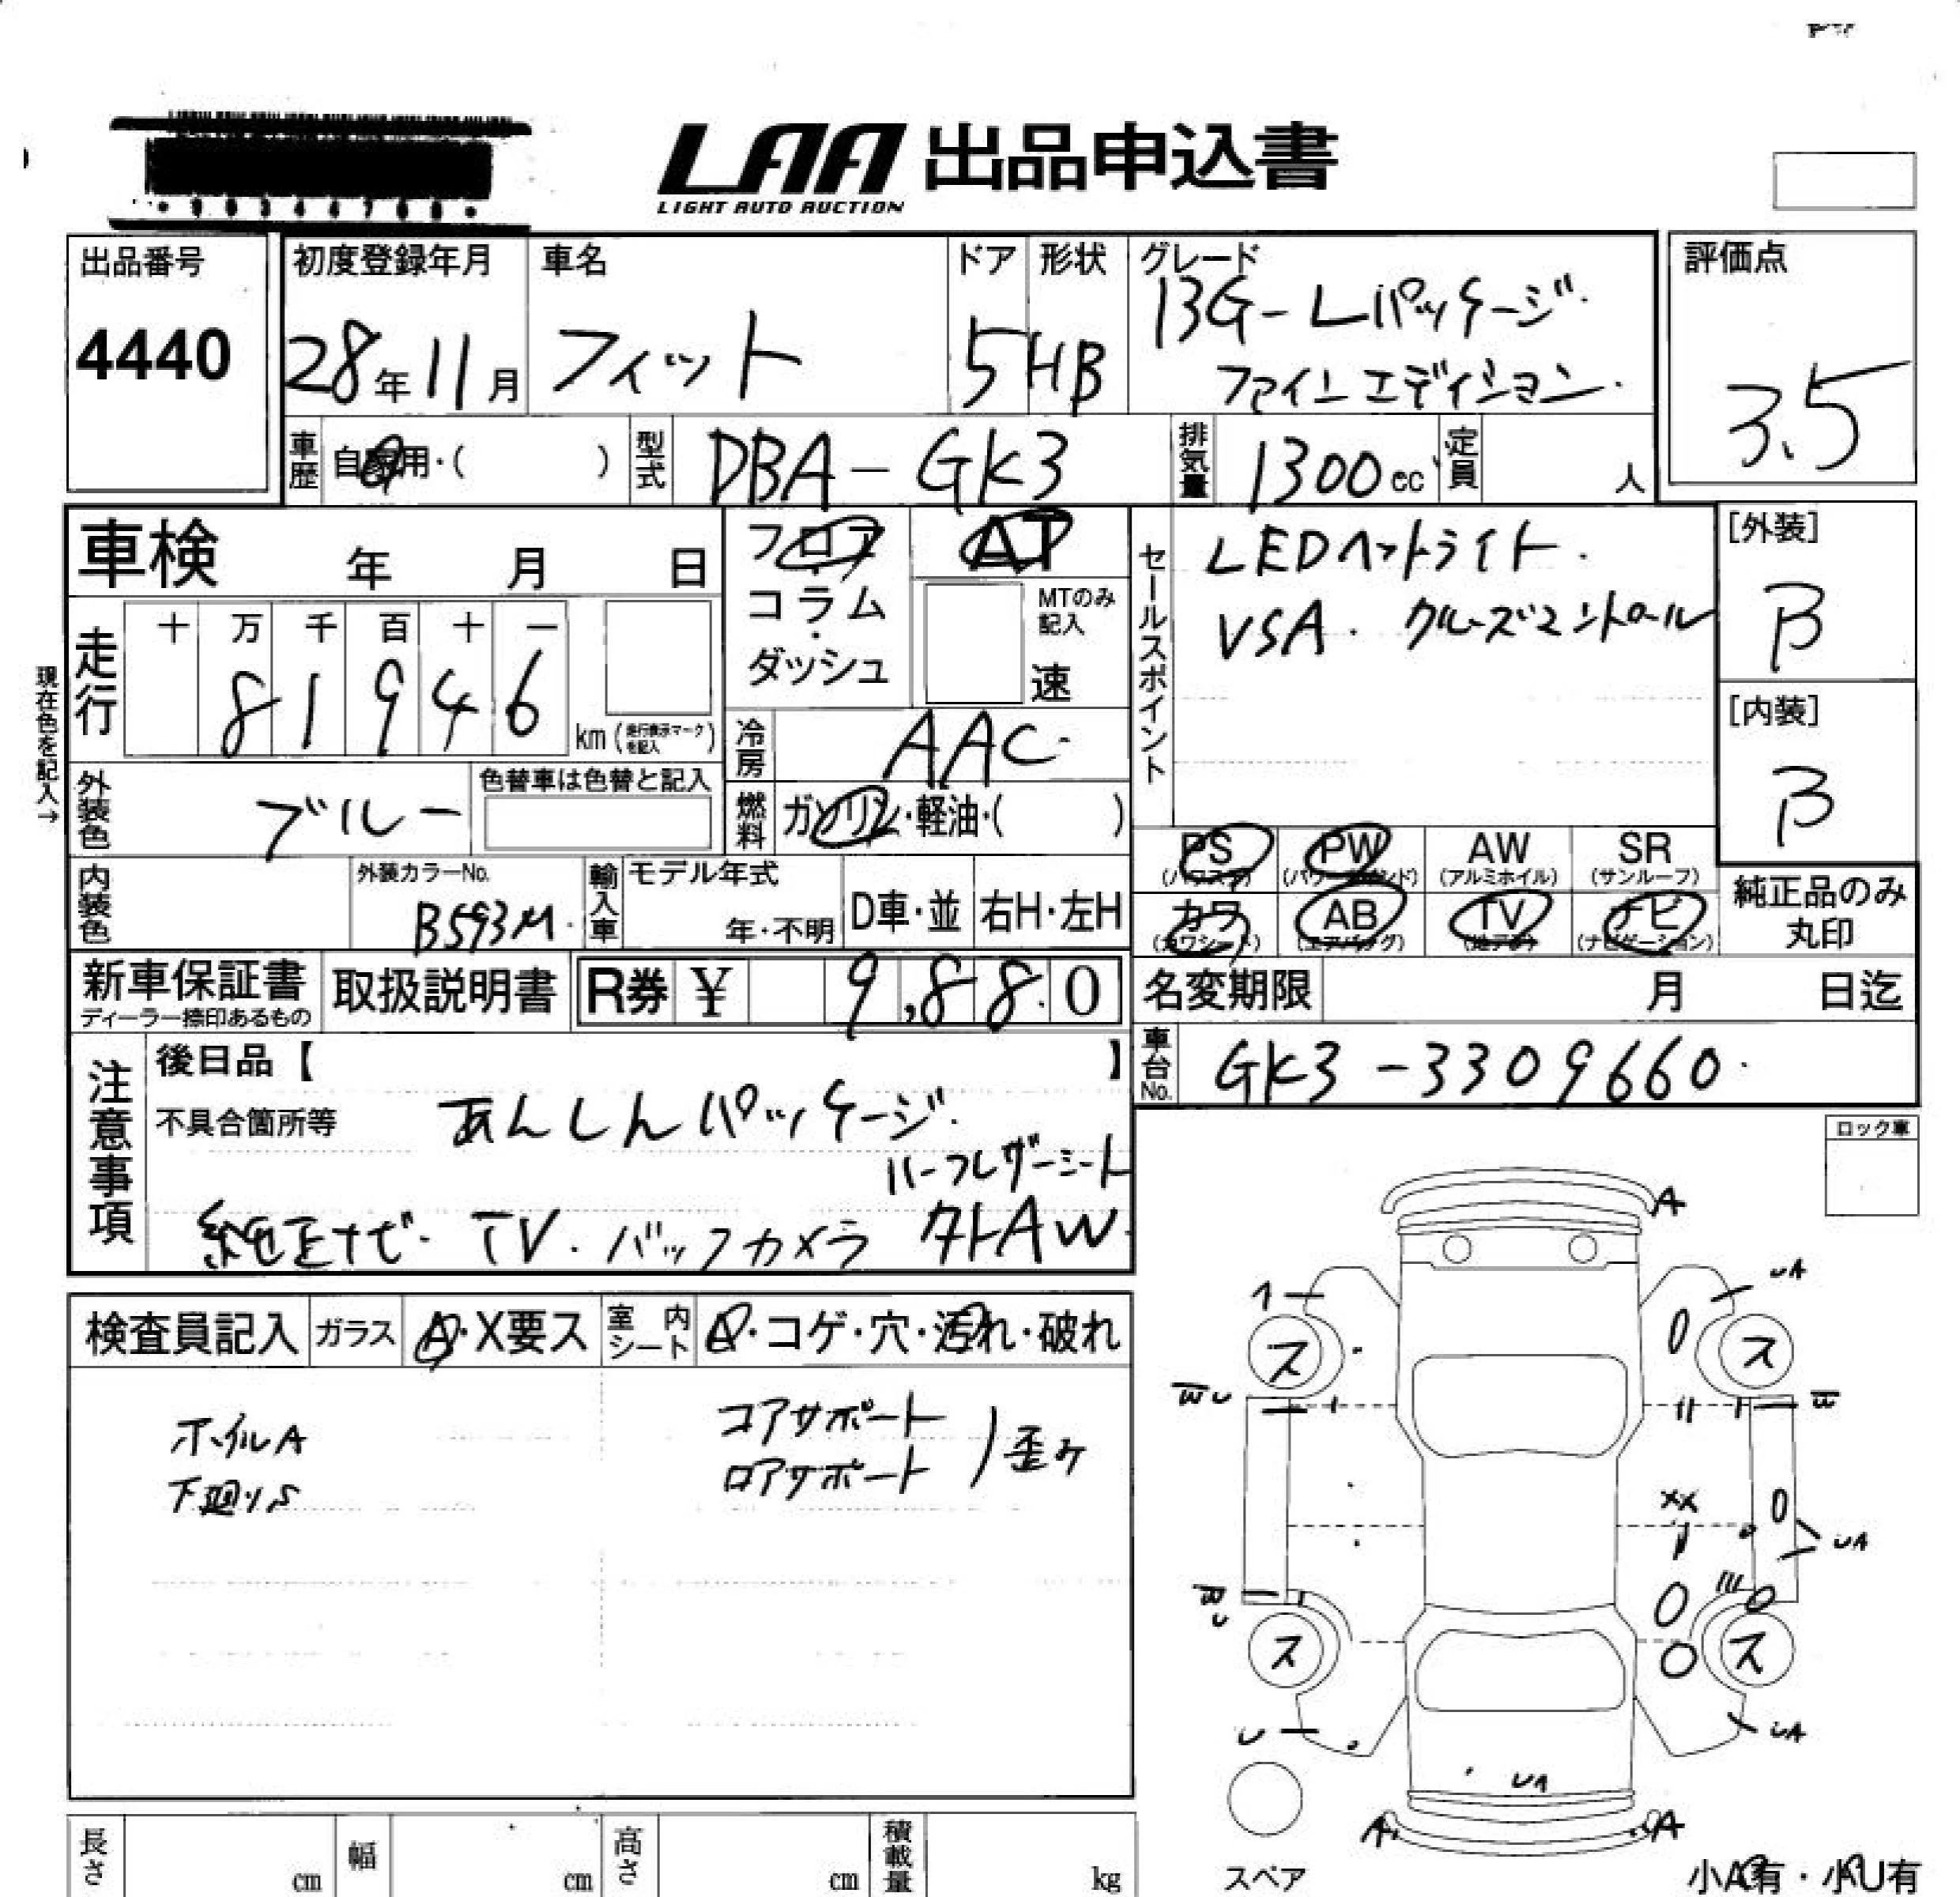 LAA 出品申込書
LIGHT AUTO AUCTION
出品番号
4440
初度登録年月
28年11月
車名
フィット
ドア
5
形状
HB
グレード
13G-Lパッケージ
ファインエディション
評価点
3.5
車歴
自家用・( )
型式
DBA-GK3
排気量
1300cc
定員
人
車検 年 月 日
フロア
・
コラム
・
ダッシュ
AT
MTのみ
記入
速
セールスポイント
LEDヘットライト
VSA. クルーズコントロール
[外装]
B
[内装]
B
現在色を記入→
走行
十 万 千 百 十 一
8 1 9 4 6
km(走行表示マークを記入)
冷房
AAC
外装色
ブルー
色替車は色替と記入
燃料
ガソリン・軽油・( )
内装色
外装カラーNo.
B593M
輸入車
モデル年式
年・不明
D車・並
右H・左H
PS
(パワステ)
PW
(パワーウインド)
AW
(アルミホイル)
SR
(サンルーフ)
カワ
(カワシート)
AB
(エアバッグ)
TV
(地デジ)
ナビ
(ナビゲーション)
純正品のみ
丸印
新車保証書
ディーラー捺印あるもの
取扱説明書
R券 ¥ 9,880
名変期限 月 日迄
車台No.
GK3-3309660
注意事項
後日品【 】
不具合箇所等
あんしんパッケージ
ハーフレザーシート
純正ナビ・TV・バックカメラ 外AW
ロック車
検査員記入
ガラス
A・X要ス
室内シート
A・コゲ・穴・汚れ・破れ
ホイルA
下廻りS
コアサポート
ロアサポート
歪ミ
A
1
UA
ス
ス
W U
W
XX
UA
W U
ス
ス
U
UA
UA
A
A
スペア
小A有・小U有
長さ
cm
幅
cm
高さ
cm
積載量
kg